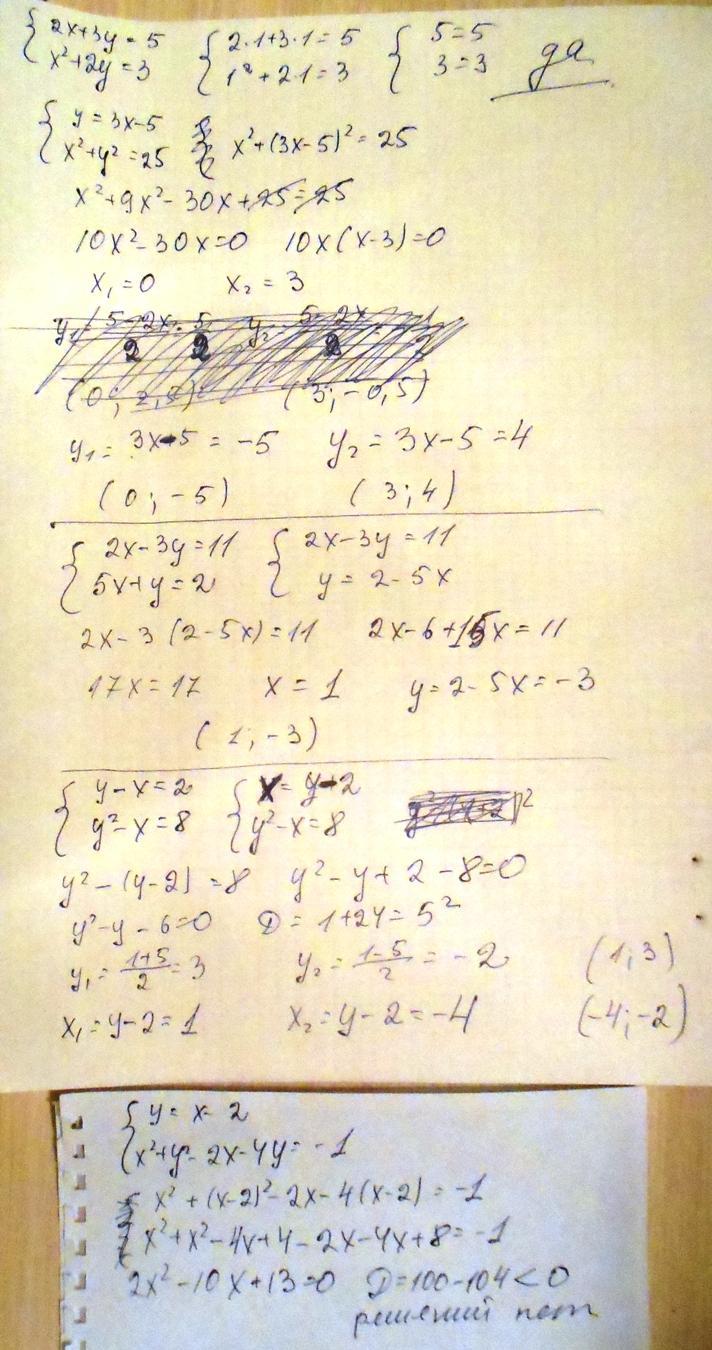 { 2x+3y=5 { 2·1+3·1=5 { 5=5
x²+2y=3 1²+2·1=3 3=3 да
{ y=3x-5
x²+y²=25 x²+(3x-5)²=25
x²+9x²-30x+25=25
10x²-30x=0 10x(x-3)=0
x₁=0 x₂=3
y₁=3x-5=-5 y₂=3x-5=4
(0;-5) (3;4)
{ 2x-3y=11 { 2x-3y=11
5x+y=2 y=2-5x
2x-3(2-5x)=11 2x-6+15x=11
17x=17 x=1 y=2-5x=-3
(1;-3)
{ y-x=2 { x=y-2
y²-x=8 y²-x=8
y²-(y-2)=8 y²-y+2-8=0
y²-y-6=0 D=1+24=5²
y₁=(1+5)/2=3 y₂=(1-5)/2=-2 (1;3)
x₁=y-2=1 x₂=y-2=-4 (-4;-2)
{ y=x-2
x²+y²-2x-4y=-1
x²+(x-2)²-2x-4(x-2)=-1
x²+x²-4x+4-2x-4x+8=-1
2x²-10x+13=0 D=100-104<0
решений нет